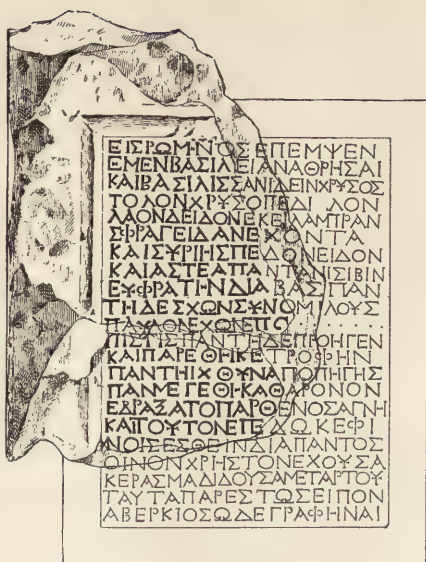 ΕΙΣΡΩΜΗΝΟΣΕΠΕΜΨΕΝ
ΕΜΕΝΒΑΣΙΛΕΙΑΝΑΘΡΗΣΑΙ
ΚΑΙΒΑΣΙΛΙΣΣΑΝΙΔΕΙΝΧΡΥΣΟΣ
ΤΟΛΟΝΧΡΥΣΟΠΕΔΙΛΟΝ
ΛΑΟΝΔΕΙΔΟΝΕΚΕΙΛΑΜΠΡΑΝ
ΣΦΡΑΓΕΙΔΑΝΕΧΟΝΤΑ
ΚΑΙΣΥΡΙΗΣΠΕΔΟΝΕΙΔΟΝ
ΚΑΙΑΣΤΕΑΠΑΝΤΑΝΙΣΙΒΙΝ
ΕΥΦΡΑΤΗΝΔΙΑΒΑΣΠΑΝ
ΤΗΔΕΣΧΩΝΣΥΝΟΜΙΛΟΥΣ
ΠΑΥΛΟΝΕΧΩΝΕΠΟ......
ΠΙΣΤΙΣΠΑΝΤΗΔΕΠΡΟΗΓΕΝ
ΚΑΙΠΑΡΕΘΗΚΕΤΡΟΦΗΝ
ΠΑΝΤΗΙΧΘΥΝΑΠΟΠΗΓΗΣ
ΠΑΝΜΕΓΕΘΗΚΑΘΑΡΟΝΟΝ
ΕΔΡΑΞΑΤΟΠΑΡΘΕΝΟΣΑΓΝΗ
ΚΑΙΤΟΥΤΟΝΕΠΕΔΩΚΕΦΙ
ΛΟΙΣΕΣΘΕΙΝΔΙΑΠΑΝΤΟΣ
ΟΙΝΟΝΧΡΗΣΤΟΝΕΧΟΥΣΑ
ΚΕΡΑΣΜΑΔΙΔΟΥΣΑΜΕΤΑΡΤΟΥ
ΤΑΥΤΑΠΑΡΕΣΤΩΣΕΙΠΟΝ
ΑΒΕΡΚΙΟΣΩΔΕΓΡΑΦΗΝΑΙ